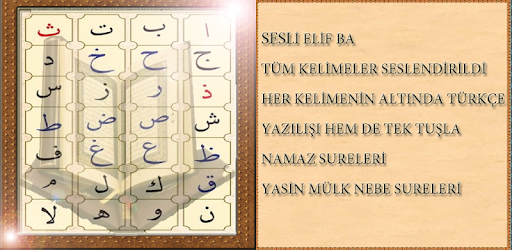 ا ب ت ث
ج ح خ د
ذ ر ز س
ش ص ض ط
ظ ع غ ف
ق ك ل م
ن و ه لا
SESLİ ELİF BA
TÜM KELİMELER SESLENDİRİLDİ
HER KELİMENİN ALTINDA TÜRKÇE
YAZILIŞI HEM DE TEK TUŞLA
NAMAZ SURELERİ
YASİN MÜLK NEBE SURELERİ